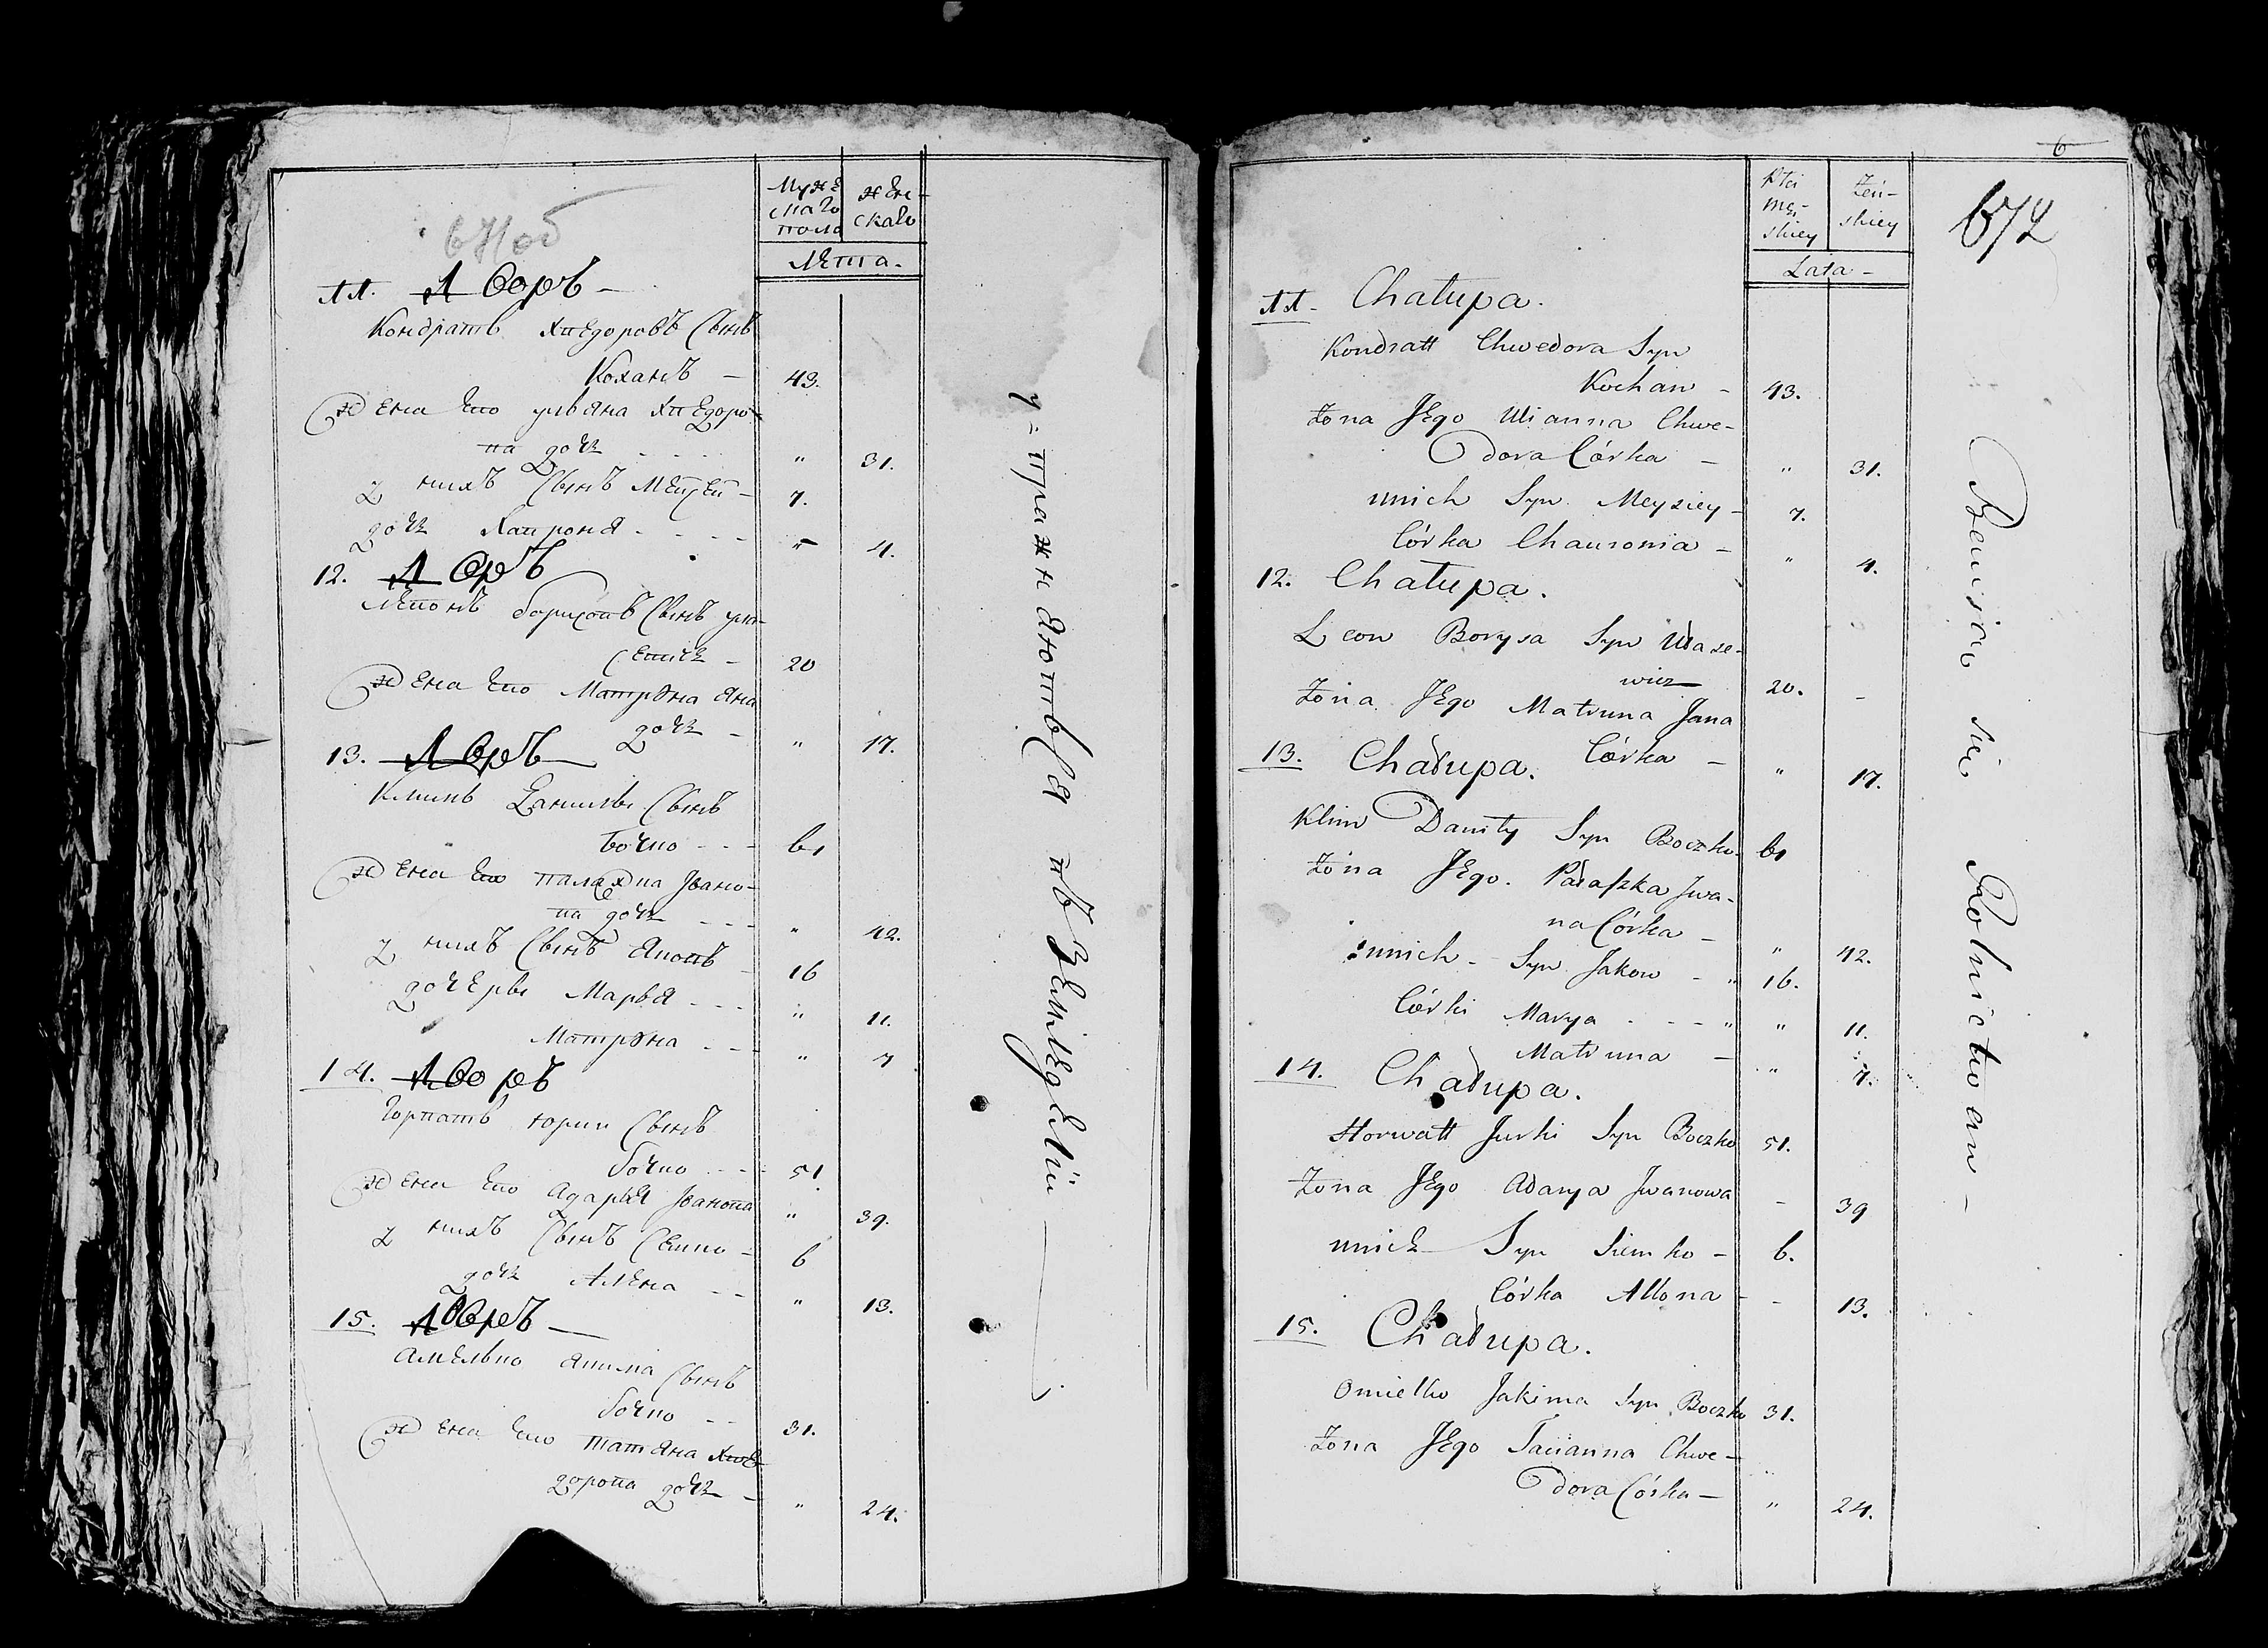 Мужескаго пола
женскаго
Лета.
11. Дворъ —
Кондратъ Хведоровъ Сынъ
Коханъ — 43.
Жена Его ульяна Хведоро-
ва дочь " 31.
у нихъ Сынъ Мейзей - 7.
дочь Хавроня - " 4.
12. Дворъ
Левонъ борисовъ Сынъ
20
Жена Его Матруна Яна
дочь - " 17.
13. Дворъ
Климъ Данилы Сынъ
бочко - - - 61
Жена Его Ивано-
ва дочь - - " 42.
у нихъ Сынъ Яковъ - 16
дочеры Марья - - - " 11.
Матруна - - " 7
14. Дворъ
Горватъ юрки Сынъ
бочко - - - 51
Жена Его Адарья Иванова " 39.
у нихъ Сынъ Семко - 6
дочь Алена - - " 13.
15. Дворъ —
Амелько Якима Сынъ
бочко - - 31.
Жена Его татяна Хве-
дорова дочь - " 24.
упражняютъся въ Земледелiи
6
672
Płci męskiey
żeńskiey
Lata -
11 - Chałupa.
Kondratt Chwedora Syn
Kochan - 43.
Żona JEgo Ulianna Chwe-
dora Córka - " 31.
unich Syn Meysiey - 7.
Córka Chauronia - " 4.
12. Chałupa.
Leon Borysa Syn Ułase-
wicz 20. -
Żona JEgo Matruna Jana
Córka - " 17.
13. Chałupa.
Klim Daniły Syn Boczko - 61
Żona JEgo. Paraszka Jwa-
na Córka - " 42.
unich - Syn Jakow - " 16.
Córki Marya - - - " " 11.
Matruna - " 7.
14. Chałupa.
Horwatt Jurki Syn Boczko 51.
Żona JEgo Adarya Jwanowa - 39
unich Syn Siemko - 6.
Córka Allona - - 13.
15. Chałupa.
Omielko Jakima Syn Boczko 31.
Żona JEgo Tacianna Chwe-
dora Córka - " 24.
Bawią się Rolnictwem -